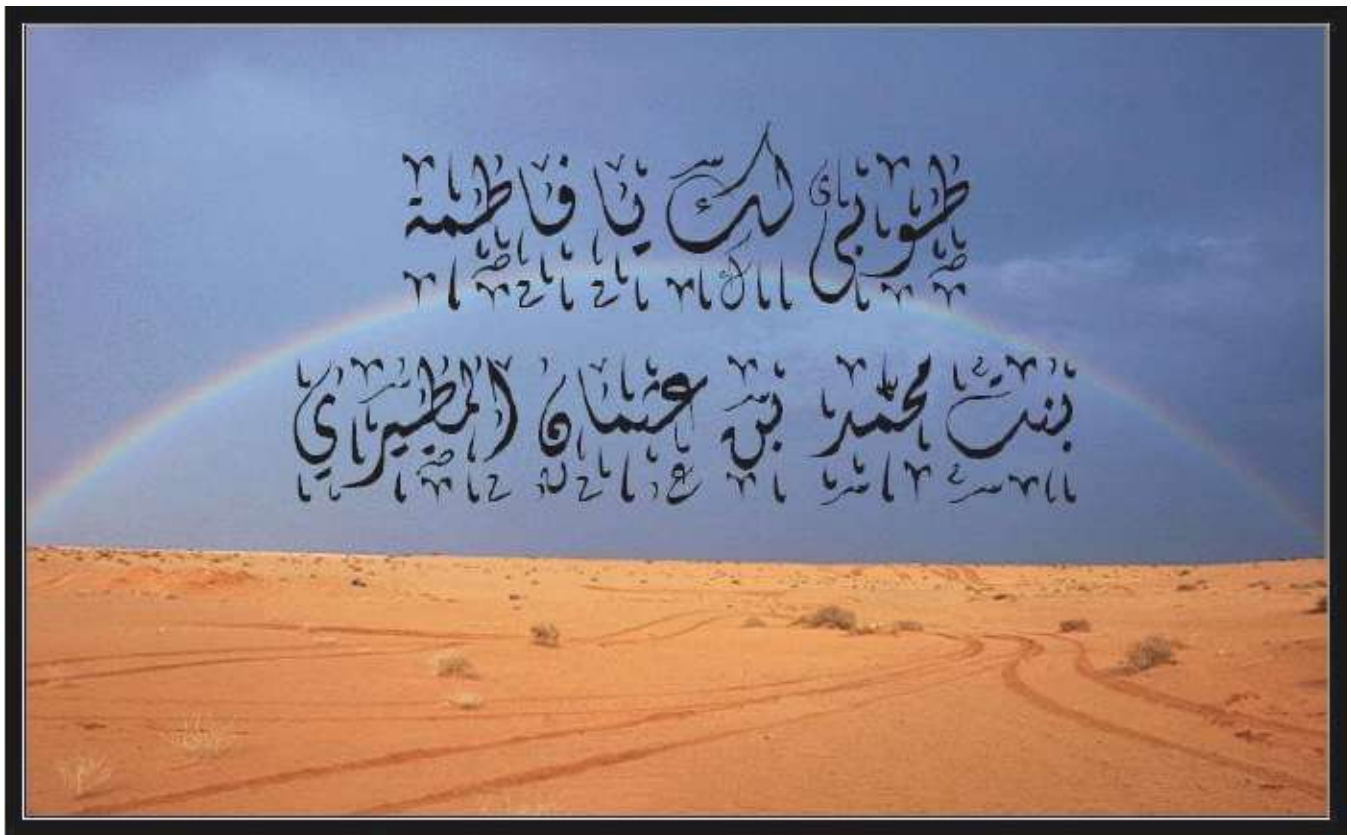 طوبى لك يا فاطمة
بنت محمد بن عثمان المطيري